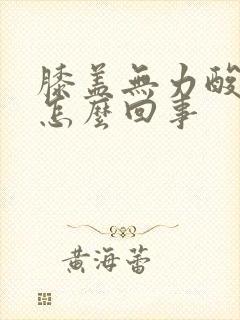 膝盖無力酸
怎麼回事
黄海蕾